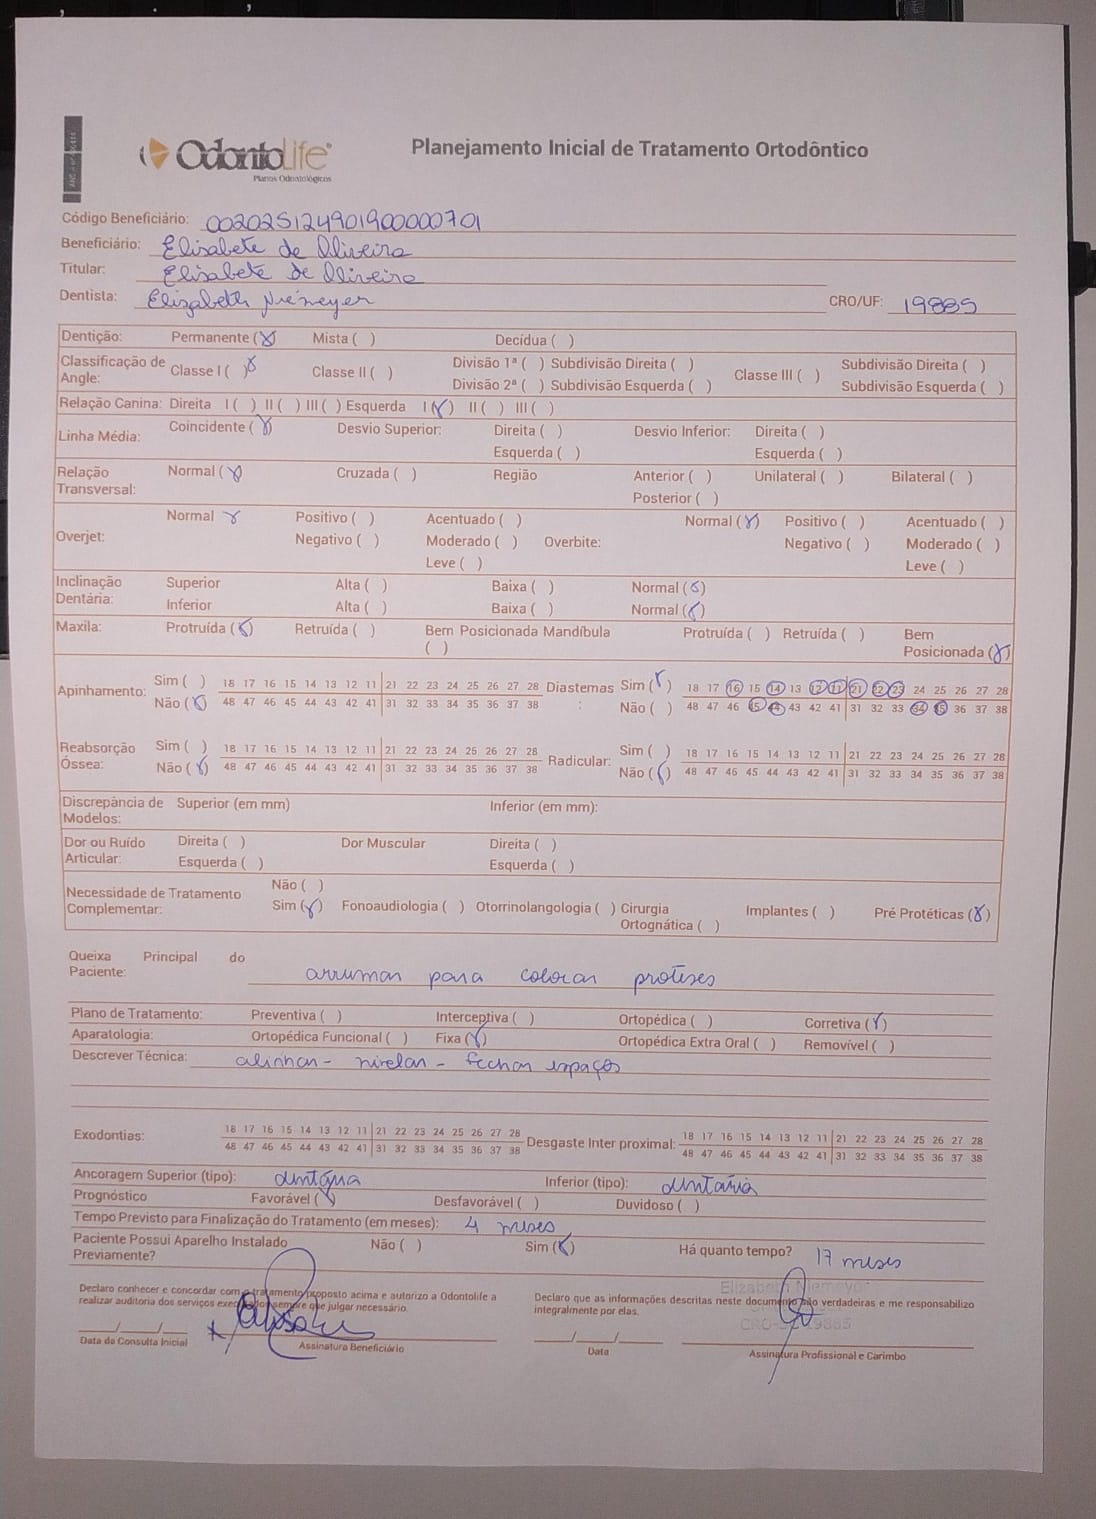 OdontoLife
Planos Odontológicos
Planejamento Inicial de Tratamento Ortodôntico
Código Beneficiário: 00202512490190000701
Beneficiário: Elisabete de Oliveira
Titular: Elisabete de Oliveira
Dentista: Elizabeth Niemeyer CRO/UF: 19885
Dentição: Permanente (X) Mista ( ) Decídua ( )
Classificação de Angle: Classe I ( )X Classe II ( ) Divisão 1ª ( ) Subdivisão Direita ( ) Classe III ( ) Subdivisão Direita ( )
Divisão 2ª ( ) Subdivisão Esquerda ( ) Subdivisão Esquerda ( )
Relação Canina: Direita I ( ) II ( ) III ( ) Esquerda I (X) II ( ) III ( )
Linha Média: Coincidente (X) Desvio Superior: Direita ( ) Desvio Inferior: Direita ( )
Esquerda ( ) Esquerda ( )
Relação Transversal: Normal (X) Cruzada ( ) Região Anterior ( ) Unilateral ( ) Bilateral ( )
Posterior ( )
Overjet: Normal X Positivo ( ) Acentuado ( ) Overbite: Normal (X) Positivo ( ) Acentuado ( )
Negativo ( ) Moderado ( ) Negativo ( ) Moderado ( )
Leve ( ) Leve ( )
Inclinação Dentária: Superior Alta ( ) Baixa ( ) Normal (X)
Inferior Alta ( ) Baixa ( ) Normal (X)
Maxila: Protruída (X) Retruída ( ) Bem Posicionada ( ) Mandíbula Protruída ( ) Retruída ( ) Bem Posicionada (X)
Apinhamento: Sim ( ) 18 17 16 15 14 13 12 11 21 22 23 24 25 26 27 28 Diastemas: Sim (X) 18 17 16 15 14 13 12 11 21 22 23 24 25 26 27 28
Não (X) 48 47 46 45 44 43 42 41 31 32 33 34 35 36 37 38 Não ( ) 48 47 46 45 44 43 42 41 31 32 33 34 35 36 37 38
Reabsorção Óssea: Sim ( ) 18 17 16 15 14 13 12 11 21 22 23 24 25 26 27 28 Radicular: Sim ( ) 18 17 16 15 14 13 12 11 21 22 23 24 25 26 27 28
Não (X) 48 47 46 45 44 43 42 41 31 32 33 34 35 36 37 38 Não (X) 48 47 46 45 44 43 42 41 31 32 33 34 35 36 37 38
Discrepância de Modelos: Superior (em mm) Inferior (em mm):
Dor ou Ruído Articular: Direita ( ) Dor Muscular Direita ( )
Esquerda ( ) Esquerda ( )
Necessidade de Tratamento Complementar: Não ( )
Sim (X) Fonoaudiologia ( ) Otorrinolangologia ( ) Cirurgia Ortognática ( ) Implantes ( ) Pré Protéticas (X)
Queixa Principal do Paciente: arrumar para colocar próteses
Plano de Tratamento: Preventiva ( ) Interceptiva ( ) Ortopédica ( ) Corretiva (X)
Aparatologia: Ortopédica Funcional ( ) Fixa (X) Ortopédica Extra Oral ( ) Removível ( )
Descrever Técnica: alinhar - nivelar - fechar espaços
Exodontias: 18 17 16 15 14 13 12 11 21 22 23 24 25 26 27 28 Desgaste Inter proximal: 18 17 16 15 14 13 12 11 21 22 23 24 25 26 27 28
48 47 46 45 44 43 42 41 31 32 33 34 35 36 37 38 48 47 46 45 44 43 42 41 31 32 33 34 35 36 37 38
Ancoragem Superior (tipo): dentária Inferior (tipo): dentária
Prognóstico Favorável (X) Desfavorável ( ) Duvidoso ( )
Tempo Previsto para Finalização do Tratamento (em meses): 4 meses
Paciente Possui Aparelho Instalado Previamente? Não ( ) Sim (X) Há quanto tempo? 17 meses
Declaro conhecer e concordar com o tratamento proposto acima e autorizo a Odontolife a
realizar auditoria dos serviços executados sempre que julgar necessário.
Declaro que as informações descritas neste documento são verdadeiras e me responsabilizo
integralmente por elas.
Elizabeth Niemeyer
19885
___/___/___
Data da Consulta Inicial Assinatura Beneficiário
___/___/___
Data Assinatura Profissional e Carimbo